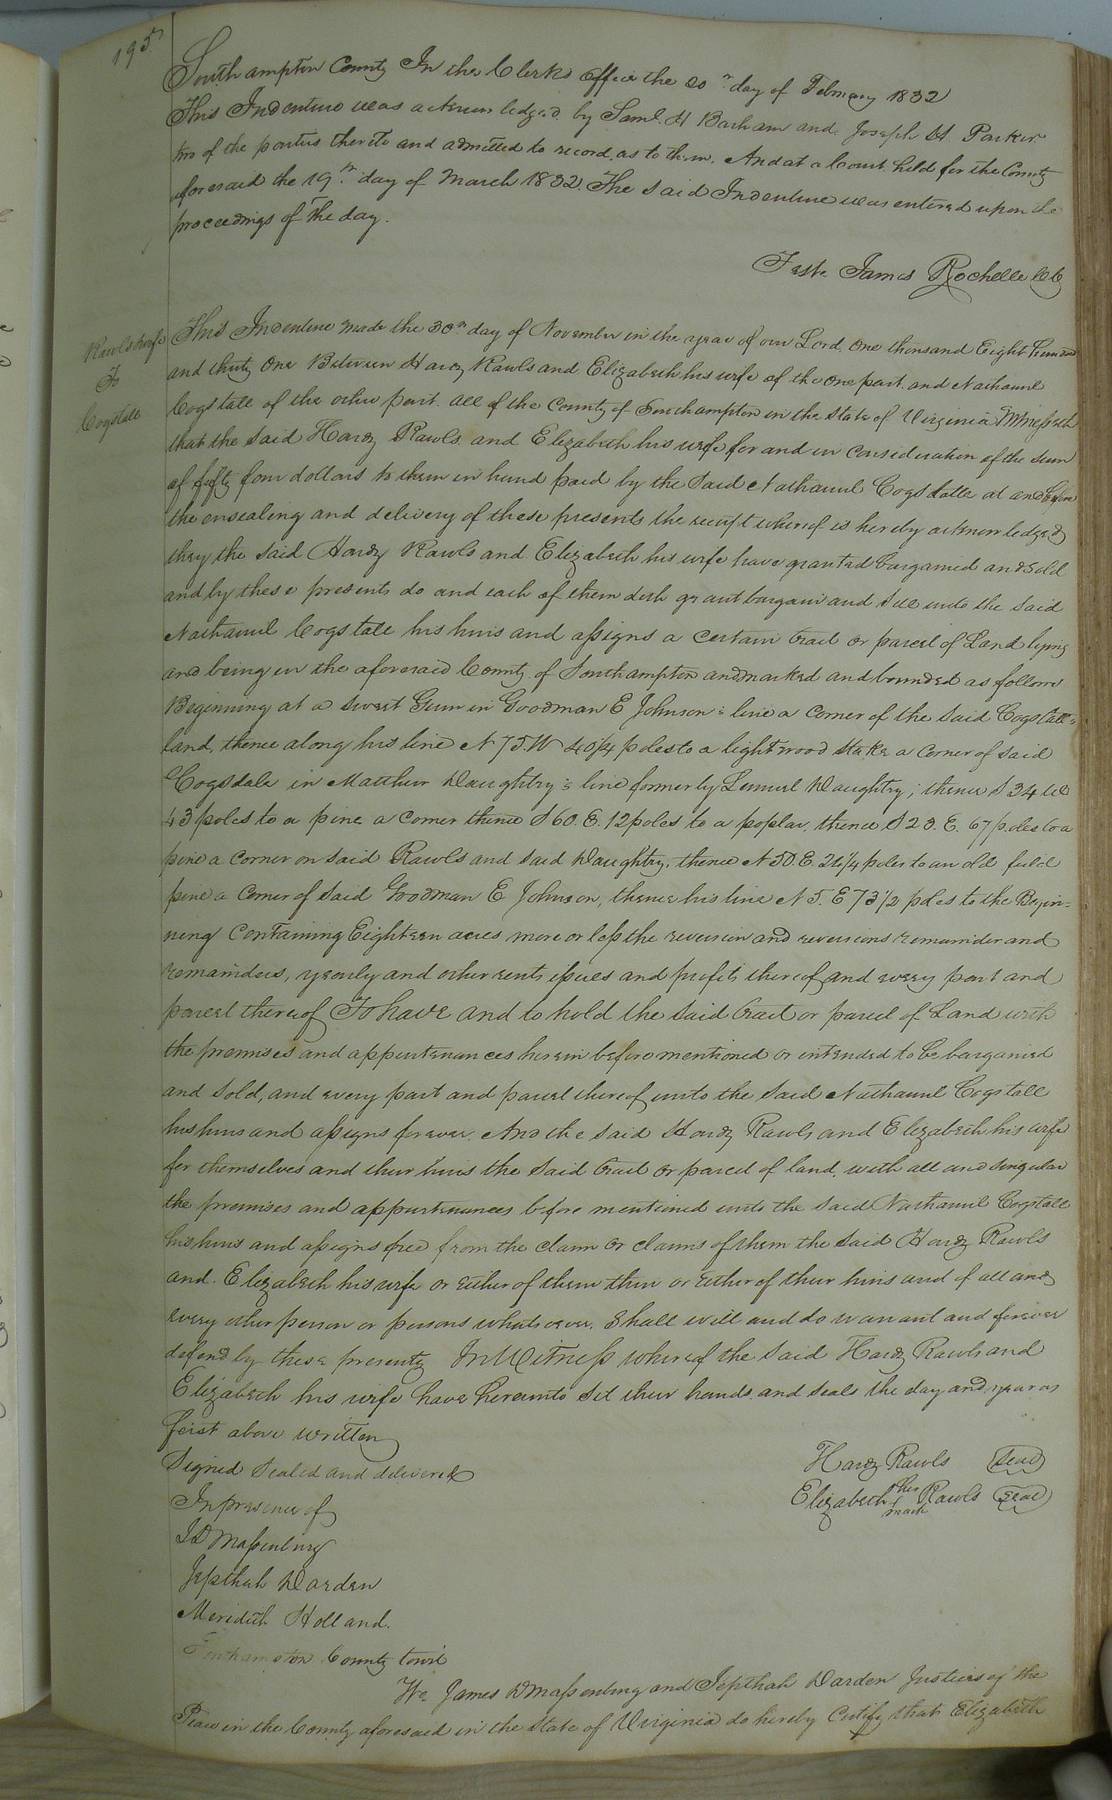 195
Southampton County In the Clerks office the 20th day of February 1832
This Indenture was acknowledged by Saml. H Barham and Joseph H. Parker
two of the parties thereto and admitted to record, as to them. And at a Court held for the County
aforesaid the 19th day of March 1832 The said Indenture was entered upon the
proceedings of the day.
Teste James Rochelle CC
Rawls & wife
To
Cogstale
This Indenture made the 30th day of November in the year of our Lord One thousand Eight hundred
and thirty One Between Hardy Rawls and Elizabeth his wife of the one part and Nathaniel
Cogstale of the other part. all of the County of Southampton in the State of Virginia Witnesseth
that the said Hardy Rawls and Elizabeth his wife for and in consideration of the sum
of fifty four dollars to them in hand paid by the said Nathaniel Cogstale at and before
the ensealing and delivery of these presents the receipt whereof is hereby acknowledged
they the said Hardy Rawls and Elizabeth his wife have granted bargained and sold
and by these presents do and each of them doth grant bargain and sell unto the said
Nathaniel Cogstale his heirs and assigns a certain tract or parcel of Land lying
and being in the aforesaid County of Southampton and marked and bounded as follows
Beginning at a Sweet Gum in Goodman E Johnson's line a corner of the said Cogstale's
land, thence along his line N 75. W 40 1/4 poles to a lightwood Stake a corner of said
Cogsdale in Matthew Daughtry's line formerly Lemuel Daughtry; thence S 34 W
43 poles to a pine a corner thence S 60. E. 12 poles to a poplar, thence S 23. E. 67 poles to a
pine a corner on said Rawls and said Daughtry, thence N 50. E 24 1/4 poles to an old field
pine a corner of said Goodman E Johnson, thence his line N 5. E 73 1/2 poles to the Begin-
ning Containing Eighteen acres more or less the reversion and reversions remainder and
remainders, yearly and other rents issues and profits thereof and every part and
parcel thereof To have and to hold the said tract or parcel of Land with
the premises and appurtenances herein before mentioned or intended to be bargained
and sold, and every part and parcel thereof unto the said Nathaniel Cogstale
his heirs and assigns forever. And the said Hardy Rawls and Elizabeth his wife
for themselves and their heirs the said tract or parcel of land, with all and singular
the premises and appurtenances before mentioned unto the said Nathaniel Cogstale
his heirs and assigns free from the claim or claims of them the said Hardy Rawls
and Elizabeth his wife or either of them their or either of their heirs and of all and
every other person or persons whatsoever, shall will and do warrant and forever
defend by these presents In Witness whereof the said Hardy Rawls and
Elizabeth his wife have hereunto set their hands and seals the day and year as
first above written
Signed Sealed and delivered
Hardy Rawls Seal
In presence of
Elizabeth her mark Rawls Seal
J D Massenburg
Jepthah Darden
Meredith Holland.
Southampton County towit
We James D Massenburg and Jepthah Darden Justices of the
Peace in the County aforesaid in the State of Virginia do hereby Certify that Elizabeth